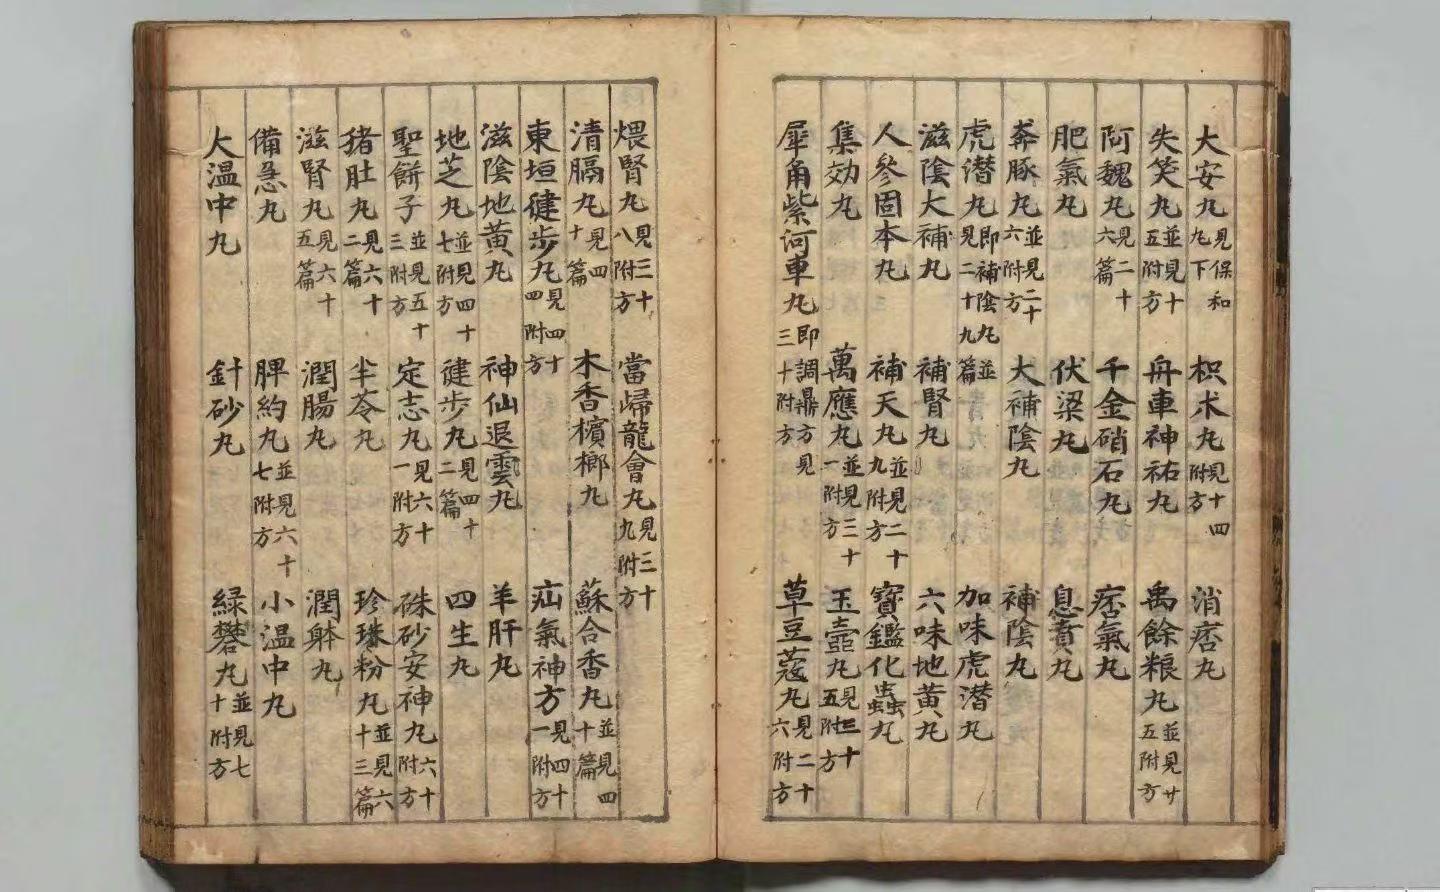 大安丸見保和丸下 枳朮丸見十四附方 消痞丸
失笑丸並見十五附方 舟車神祐丸 禹餘粮丸並見廿五附方
阿魏丸見二十六篇 千金硝石丸 痞氣丸
肥氣丸 伏梁丸 息賁丸
奔豚丸並見二十六附方 大補陰丸 補陰丸
虎潛丸即補陰丸並見二十九篇 加味虎潛丸
滋陰大補丸 補腎丸 六味地黄丸
人參固本丸 補天丸並見二十九附方 寶鑑化蟲丸
集効丸 萬應丸並見三十一附方 玉壼丸見三十五附方
犀角紫河車丸即調鼎方見三十附方 草豆蔻丸見二十六附方
煨腎丸見三十八附方 當歸龍會丸見三十九附方
清膈丸見四十篇 木香檳榔丸 蘇合香丸並見四十篇
東垣健步丸見四十四附方 疝氣神方見四十一附方
滋陰地黄丸 神仙退雲丸 羊肝丸
地芝丸並見四十七附方 健步丸見四十二篇 四生丸
聖餅子並見五十三附方 定志丸見六十一附方 硃砂安神丸六十附方
猪肚丸見六十二篇 半苓丸 珍珠粉丸並見六十三篇
滋腎丸見六十五篇 潤腸丸 潤躰丸
備急丸 脾約丸並見六十七附方 小温中丸
大温中丸 針砂丸 緑礬丸並見七十附方